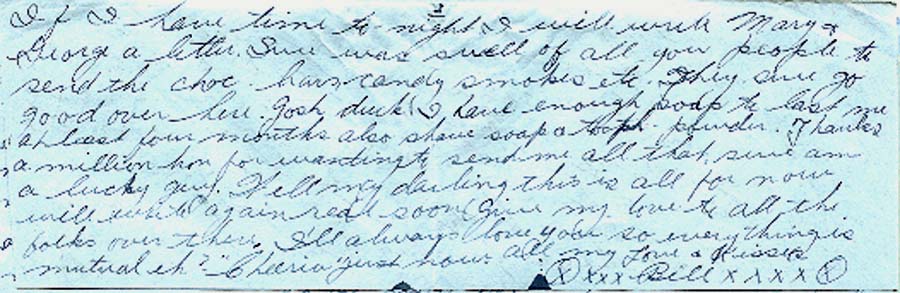 3
If I have time to night I will write Mary &
George a letter. Sure was swell of all you people to
send the choc bars candy smokes etc. They sure go
good over here. Gosh duck! I have enough soap to last me
at least four months also shave soap & tooth powder. Thanks
a million hon for wanting to send me all that, sure am
a lucky guy. Well my darling this is all for now
will write again real soon. Give my love to all the
folks over there. I'll always love you so everything is
mutual eh? "Cheerio" just now all my love & kisses
(X) xxx Bill x x x x (X)